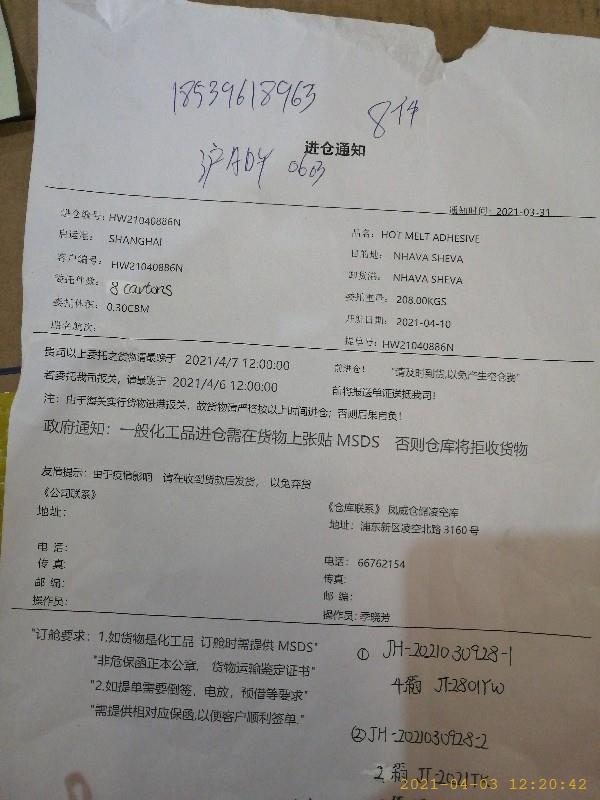 18539618963
8件
进仓通知
沪ADY 0603
通知时间: 2021-03-31
进仓编号: HW21040886N
品名: HOT MELT ADHESIVE
启运港: SHANGHAI
目的地: NHAVA SHEVA
客户编号: HW21040886N
卸货港: NHAVA SHEVA
委托件数: 8 cartons
委托重量: 208.00KGS
委托体积: 0.30CBM
开航日期: 2021-04-10
船名航次:
提单号: HW21040886N
贵司以上委托之货物请最晚于 2021/4/7 12:00:00 前进仓! "请及时到货,以免产生空仓费"
若委托我司报关，请最晚于 2021/4/6 12:00:00 前将报送单证送抵我司!
注：由于海关实行货物进港报关，故货物请严格按以上时间进仓；否则后果自负!
政府通知：一般化工品进仓需在货物上张贴 MSDS 否则仓库将拒收货物
友情提示：由于疫情影响 请在收到货款后发货， 以免弃货
《公司联系》
《仓库联系》 凤威仓储凌空库
地址:
地址: 浦东新区凌空北路 3160 号
电 话:
电话: 66762154
传 真:
传真:
邮 编:
邮 编:
操作员:
操作员: 季晓芳
"订舱要求：1.如货物是化工品 订舱时需提供 MSDS"
"非危保函正本公章， 货物运输鉴定证书"
"2.如提单需要倒签，电放，预借等要求"
"需提供相对应保函,以便客户顺利签单."
① JH-2021030928-1
4箱 JT-2801YW
② JH-2021030928-2
2箱
2021-04-03 12:20:42